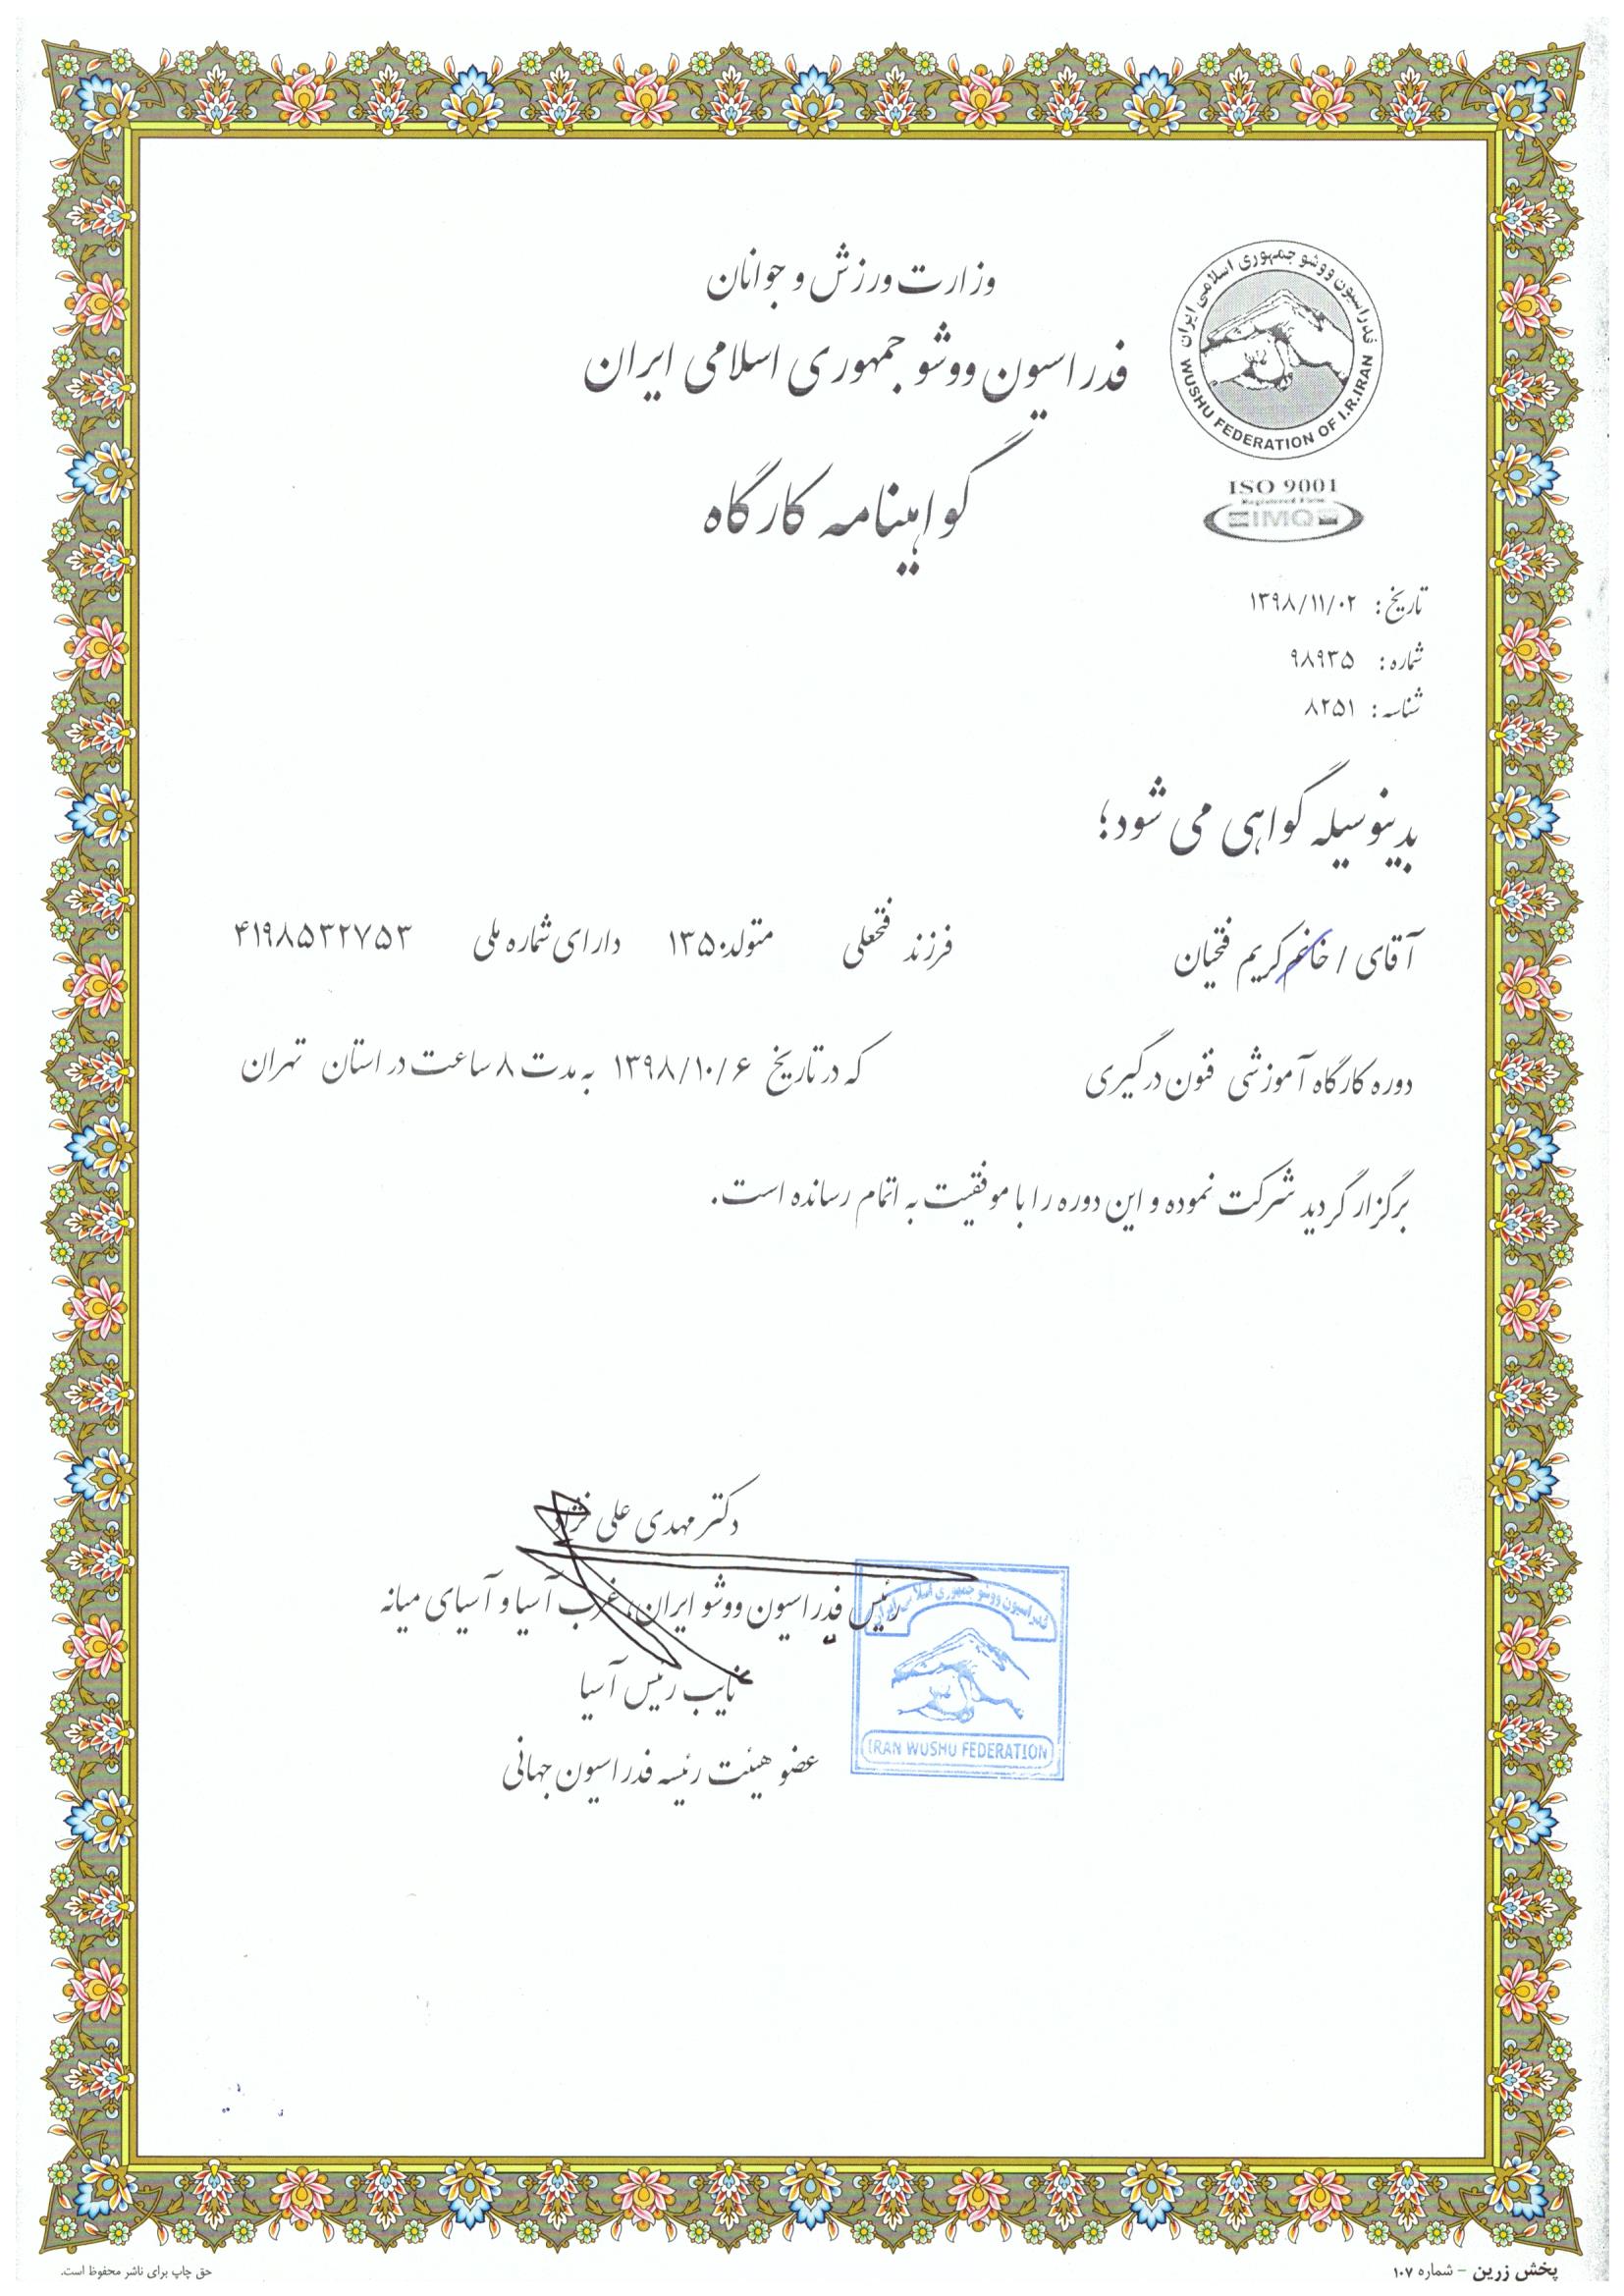 وزارت ورزش و جوانان
فدراسیون ووشو جمهوری اسلامی ایران
گواهینامه کارگاه
فدراسیون ووشو جمهوری اسلامی ایران
WUSHU FEDERATION OF I.R.IRAN
ISO 9001
Registered Firm
IMQ
تاریخ: ۱۳۹۸/۱۱/۰۲
شماره: ۹۸۹۳۵
شناسه: ۸۲۵۱
بدینوسیله گواهی می شود؛
آقای / خانم کریم فتحیان فرزند فتحعلی متولد ۱۳۵۰ دارای شماره ملی ۴۱۹۸۵۳۲۷۵۳
دوره کارگاه آموزشی فنون درگیری که در تاریخ ۱۳۹۸/۱۰/۶ به مدت ۸ ساعت در استان تهران
برگزار گردید شرکت نموده و این دوره را با موفقیت به اتمام رسانده است.
دکتر مهدی علی نژاد
رئیس فدراسیون ووشو ایران، غرب آسیا و آسیای میانه
نایب رئیس آسیا
عضو هیئت رئیسه فدراسیون جهانی
فدراسیون ووشو جمهوری اسلامی ایران
IRAN WUSHU FEDERATION
پخش زرین - شماره ۱۰۷
حق چاپ برای ناشر محفوظ است.